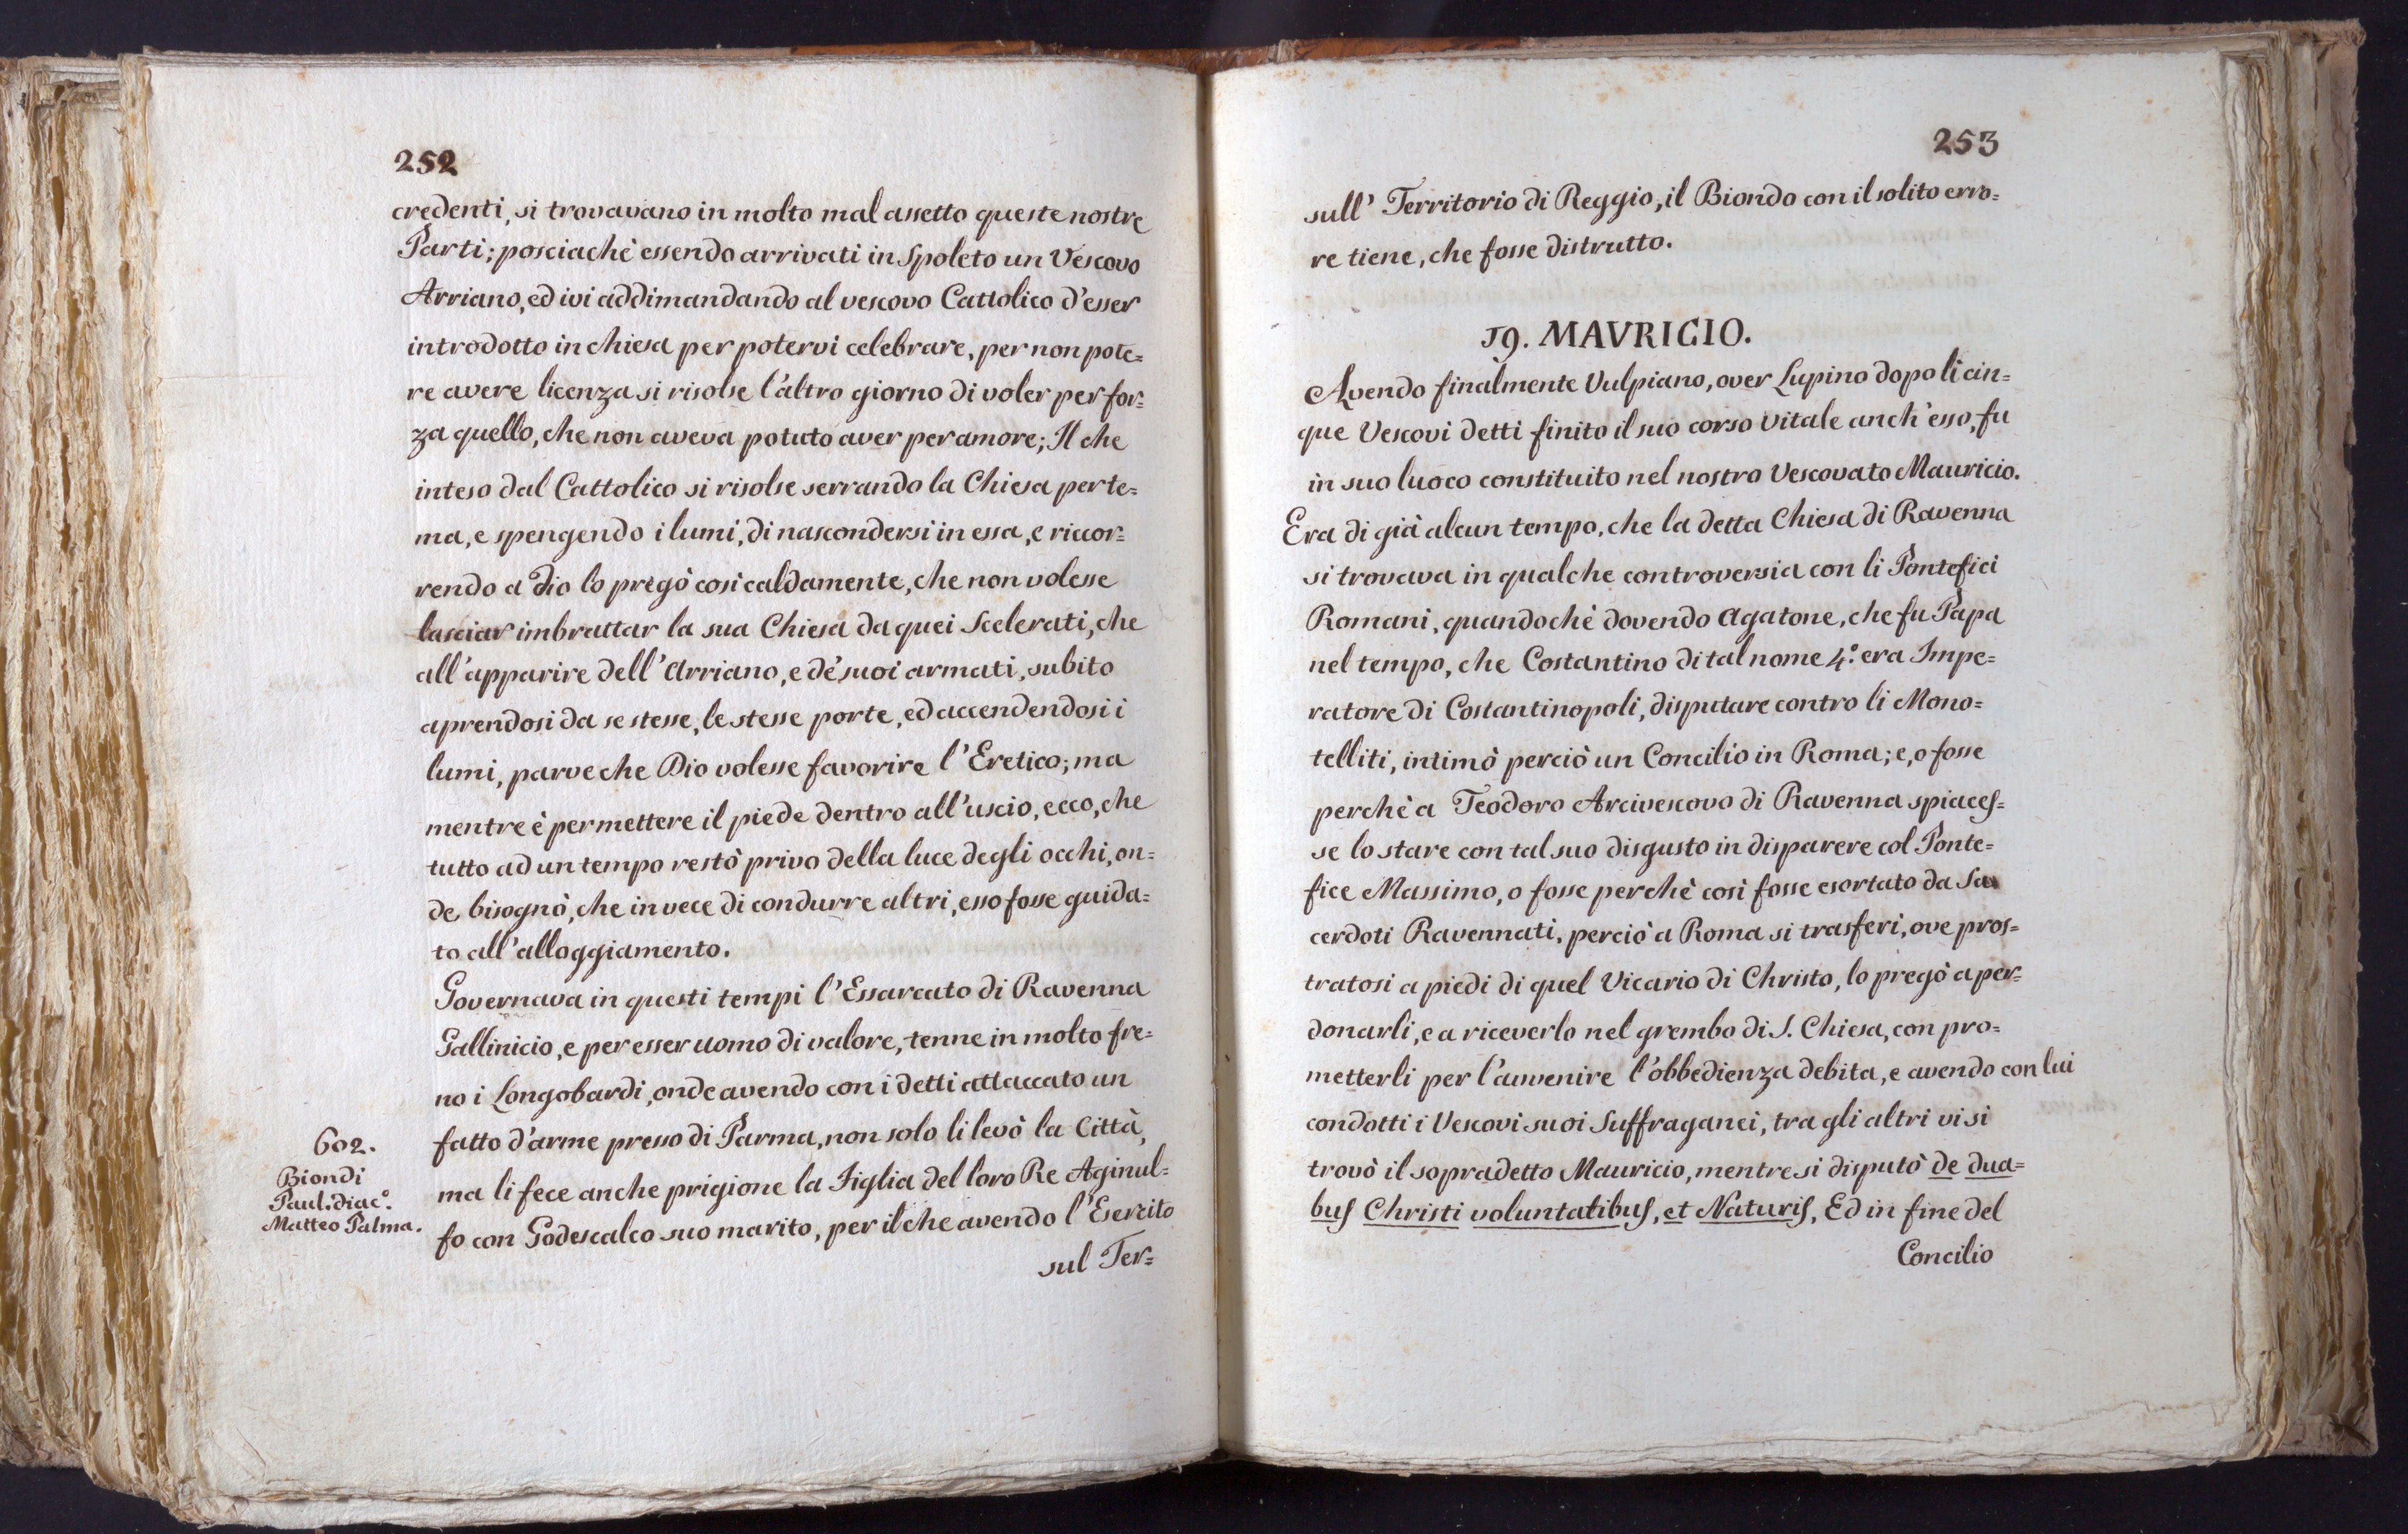 252
credenti, si trovavano in molto mal assetto queste nostre
Parti; posciachè essendo arrivati in Spoleto un Vescovo
Arriano, ed ivi addimandando al vescovo Cattolico d'esser
introdotto in chiesa per potervi celebrare, per non pote=
re avere licenza si risolse l'altro giorno di voler per for=
za quello, che non aveva potuto aver per amore; Il che
inteso dal Cattolico si risolse serrando la Chiesa per te=
ma, e spengendo i lumi, di nascondersi in essa, e riccor=
rendo a Dio lo pregò così caldamente, che non volesse
lasciar imbrattar la sua Chiesa da quei Scelerati, che
all'apparire dell'Arriano, e de' suoi armati, subito
aprendosi da se stesse, le stesse porte, ed accendendosi i
lumi, parve che Dio volesse favorire l'Eretico; ma
mentre è per mettere il piede dentro all'uscio, ecco, che
tutto ad un tempo restò privo della luce degli occhi, on=
de bisognò, che in vece di condurre altri, esso fosse guida=
to all'alloggiamento.
Governava in questi tempi l'Essarcato di Ravenna
Gallinicio, e per esser uomo di valore, tenne in molto fre=
no i Longobardi, onde avendo con i detti attaccato un
fatto d'arme presso di Parma, non solo li levò la Città,
ma li fece anche prigione la Figlia del loro Re Aginul=
fo con Godescalco suo marito, per il che avendo l'Esercito
sul Ter=
602.
Biondi
Paul. diac.º
Matteo Palma.
253
sull' Territorio di Reggio, il Biondo con il solito erro=
re tiene, che fosse distrutto.
19. MAVRICIO.
Avendo finalmente Vulpiano, over Lupino dopo li cin=
que Vescovi detti finito il suo corso vitale anch'esso, fu
in suo luoco constituito nel nostro Vescovato Mauricio.
Era di già alcun tempo, che la detta Chiesa di Ravenna
si trovava in qualche controversia con li Pontefici
Romani, quandochè dovendo Agatone, che fu Papa
nel tempo, che Costantino di tal nome 4.º era Impe=
ratore di Costantinopoli, disputare contro li Mono=
telliti, intimò perciò un Concilio in Roma; e, o fosse
perchè a Teodoro Arcivescovo di Ravenna spiaces=
se lo stare con tal suo disgusto in disparere col Ponte=
fice Massimo, o fosse perchè così fosse esortato da Sa
cerdoti Ravennati, perciò a Roma si trasferì, ove pros=
tratosi a piedi di quel Vicario di Christo, lo pregò a per=
donarli, e a riceverlo nel grembo di S. Chiesa, con pro=
metterli per l'avvenire l'obbedienza debita, e avendo con lui
condotti i Vescovi suoi Suffraganei, tra gli altri vi si
trovò il sopradetto Mauricio, mentre si disputò de dua=
bus Christi voluntatibus, et Naturis, Ed in fine del
Concilio